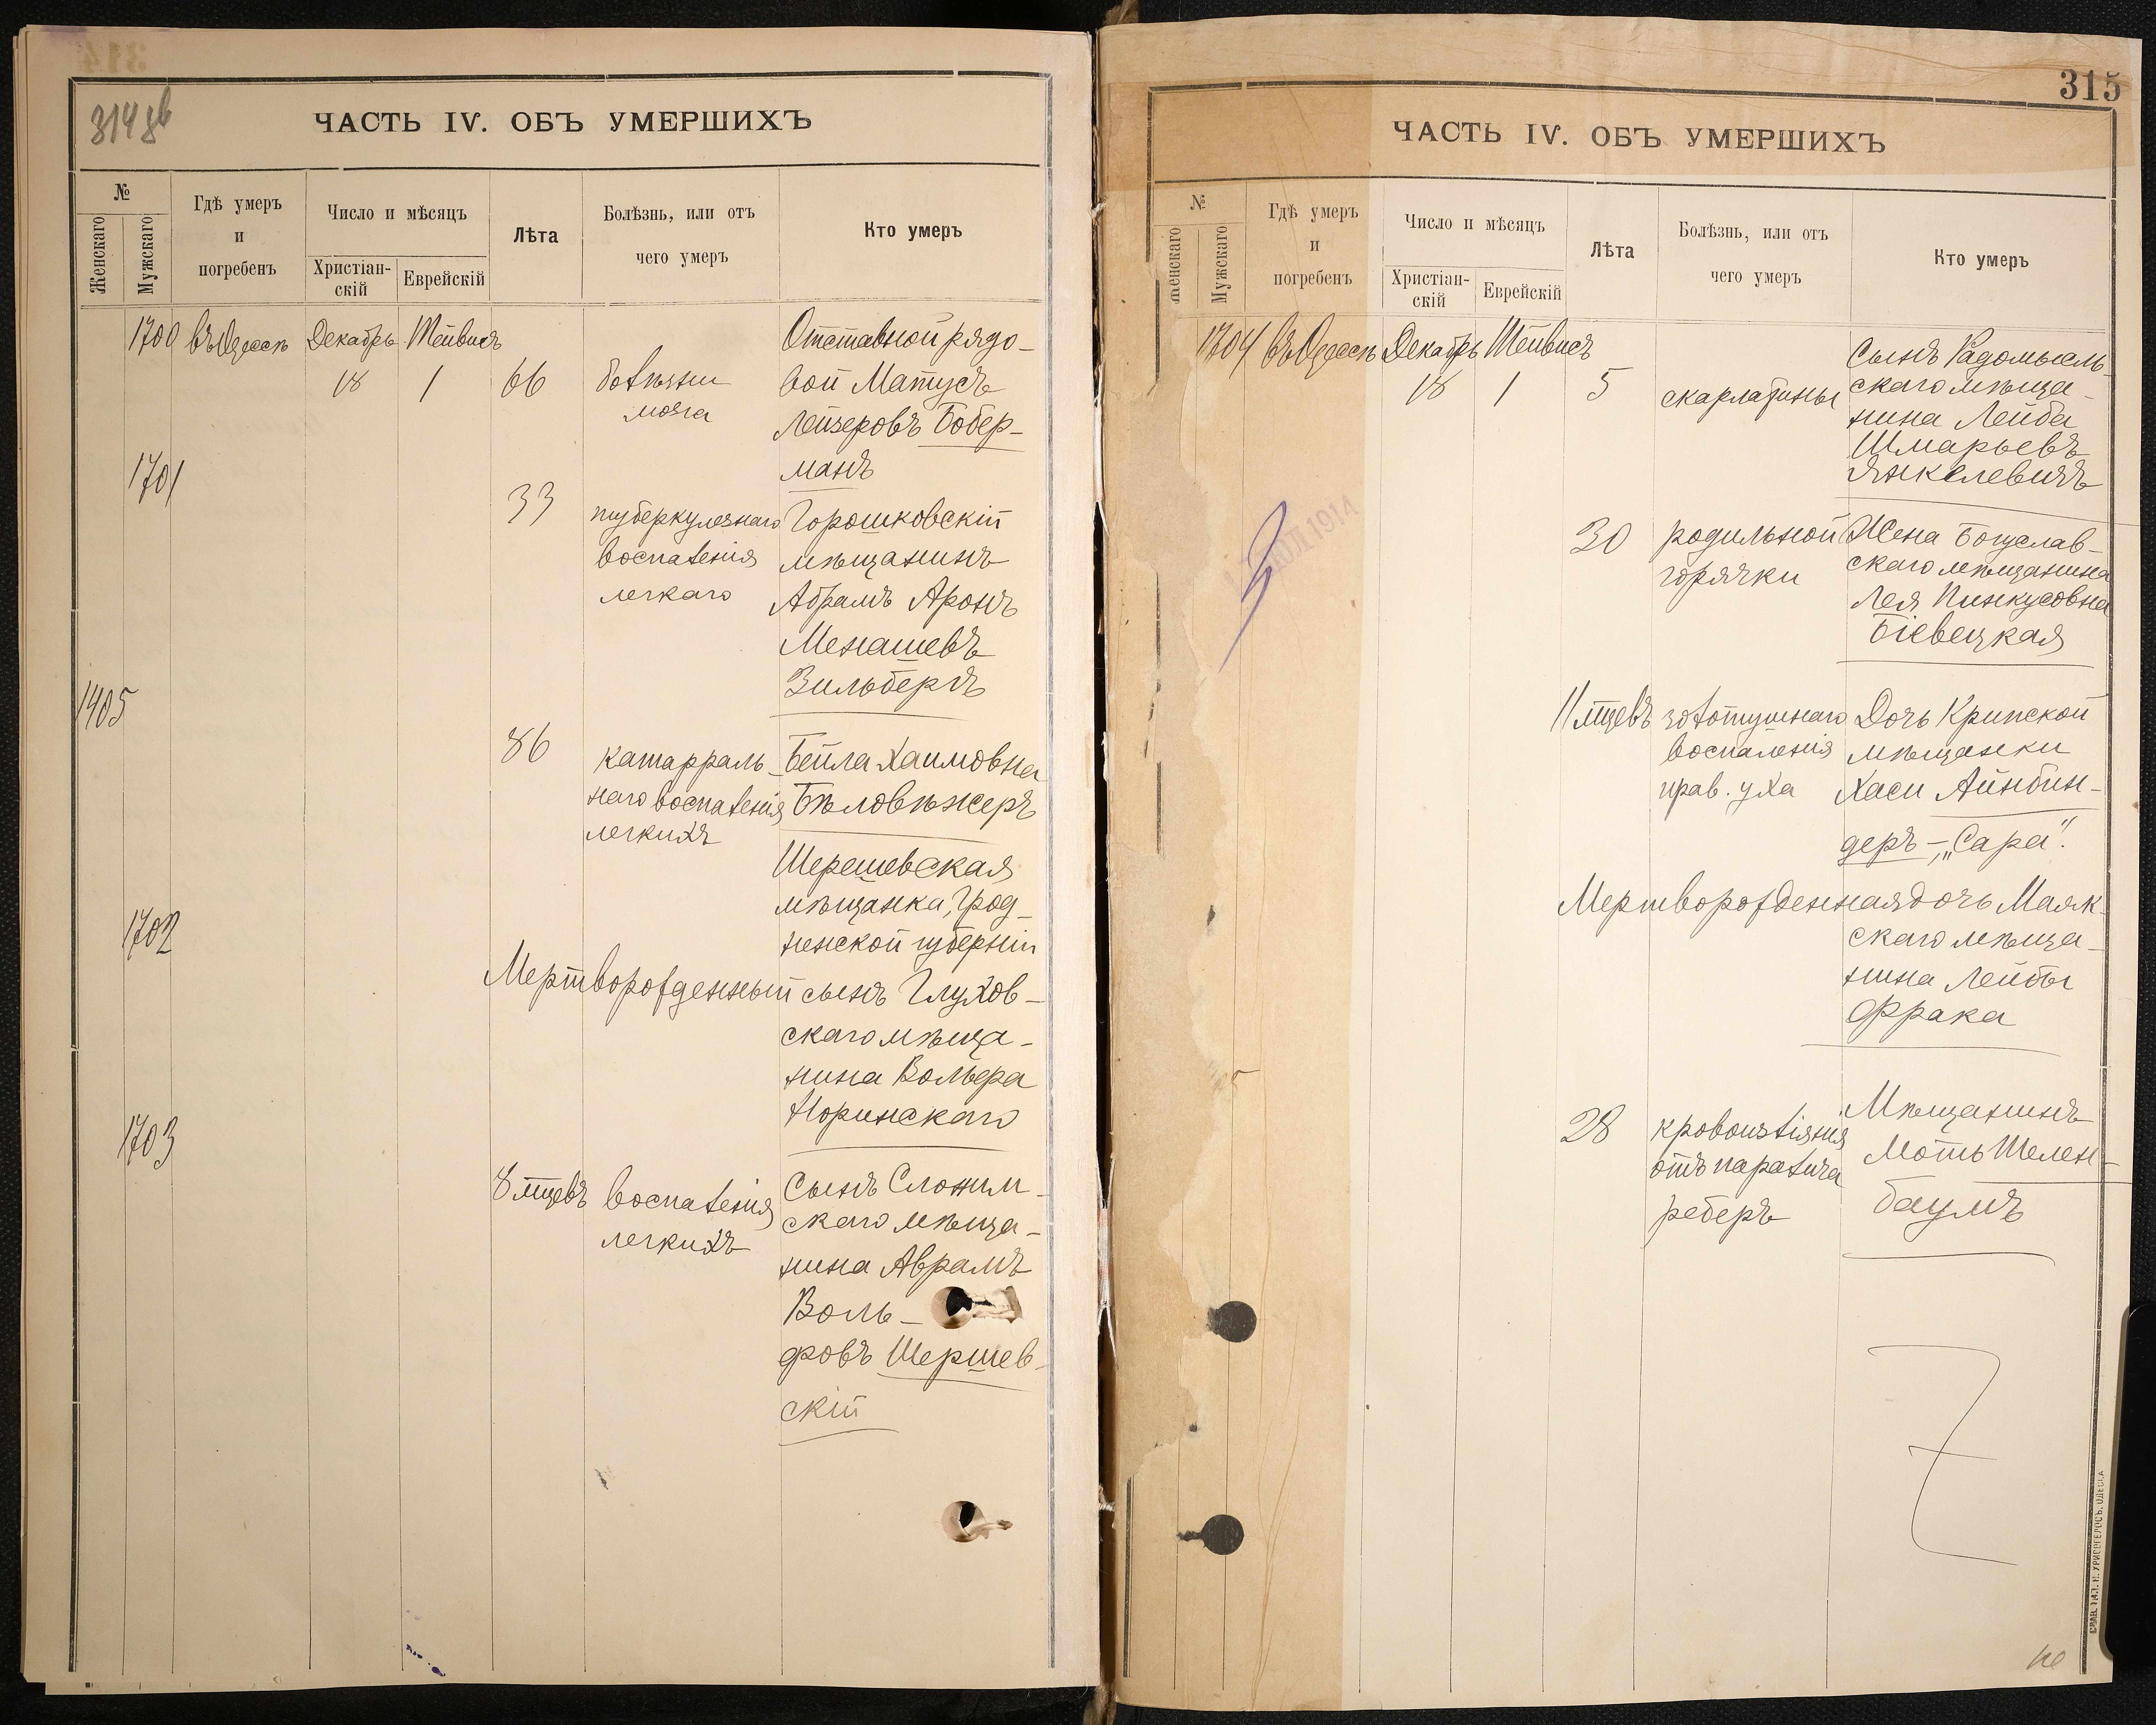 314 об
ЧАСТЬ IV. ОБЪ УМЕРШИХЪ
№
Женскаго
Мужскаго
Гдѣ умеръ
и
погребенъ
Число и мѣсяцъ
Христіан-
скій
Еврейскій
Лѣта
Болѣзнь, или отъ
чего умеръ
Кто умеръ
1700 въ Одессѣ Декабрь Тейвисъ
18 1 66
болѣзни
мозга
Отставной рядо-
вой Матусъ
Лейзеровъ Бобер-
манъ
1701
33
туберкулезнаго
воспаленія
легкаго
Горошковскій
мѣщанинъ
Абрамъ Аронъ
Менашевъ
Зильберъ
1405
86
катарраль-
наго воспаленія
легкихъ
Бейла Хаимовна
Бѣловѣжеръ
Шерешевская
мѣщанка, Грод-
ненской губерніи
1702
Мертворожденный сынъ Глухов-
скаго мѣща-
нина Вольфа
Норинскаго
1703
8 мцевъ
воспаленія
легкихъ
Сынъ Слоним-
скаго мѣща-
нина Аврамъ
Воль-
фовъ Шершев-
скій
315
ЧАСТЬ IV. ОБЪ УМЕРШИХЪ
№
Женскаго
Мужскаго
Гдѣ умеръ
и
погребенъ
Число и мѣсяцъ
Христіан-
скій
Еврейскій
Лѣта
Болѣзнь, или отъ
чего умеръ
Кто умеръ
1704 въ Одессѣ Декабрь Тейвисъ
18 1 5
скарлатины
Сынъ Радомысль-
скаго мѣща-
нина Лейба
Шмарьевъ
Янкелевичъ
1914
30
родильной
горячки
Жена Богуслав-
скаго мѣщанина
Лея Пинкусовна
Біевецкая
11 мцевъ
золотушнаго
воспаленія
прав. уха
Дочь Крипской
мѣщанки
Хаси Айнбин-
деръ - „Сара".
Мертворожденная дочь Маяк-
скаго мѣща-
нина Лейбы
Фрака
28
кровоизліянія
отъ паралича
реберъ
Мѣщанинъ
Моть Шелен-
баумъ